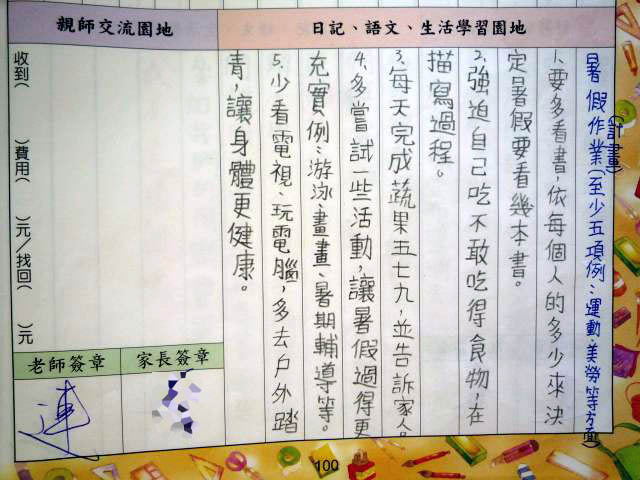 親師交流園地
日記、語文、生活學習園地
暑假作業(至少五項例:運動、美勞等方面)
(計畫)
1.要多看書,依每個人的多少來決
定暑假要看幾本書。
2.強迫自己吃不敢吃得食物,在
描寫過程。
3.每天完成蔬果五七九,並告訴家人。
4.多嘗試一些活動,讓暑假過得更
充實例:游泳、畫畫、暑期輔導等。
5.少看電視、玩電腦,多去戶外踏
青,讓身體更健康。
收到( )費用( )元/找回( )元
老師簽章
家長簽章
連
100